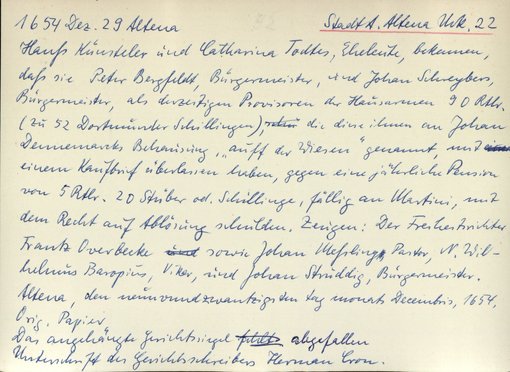 1654 Dez. 29 Altena
Stadt A. Altena Urk. 22
Hanß Künsteler und Catharina Todtes, Eheleute, bekennen,
daß sie Peter Bergfeldt, Bürgermeister, und Johan Schreybers,
Bürgermeister, als derzeitigen Provisoren der Hausarmen 90 Rtlr.
(zu 52 Dortmunder Schillingen), die diese ihnen an Johan
Dennemarks Behausung, "auff der Wiesen" genannt, mit
einem Kaufbrief überlassen haben, gegen eine jährliche Pension
von 5 Rtlr. 20 Stüber od. Schillinge, fällig an Martini, mit
dem Recht auf Ablösung schulden. Zeugen: Der Freiheitsrichter
Frantz Overbecke und sowie Johan Pastor, N. Wil-
helmus Baropius, Vikar, und Johan Strüddig, Bürgermeister.
Altena, den neunundzwantzigsten tag monats Decembris, 1654.
Orig. Papier
Das angehängte Gerichtssiegel fehlt abgefallen
Unterschrift des Gerichtsschreibers Herman Cron.